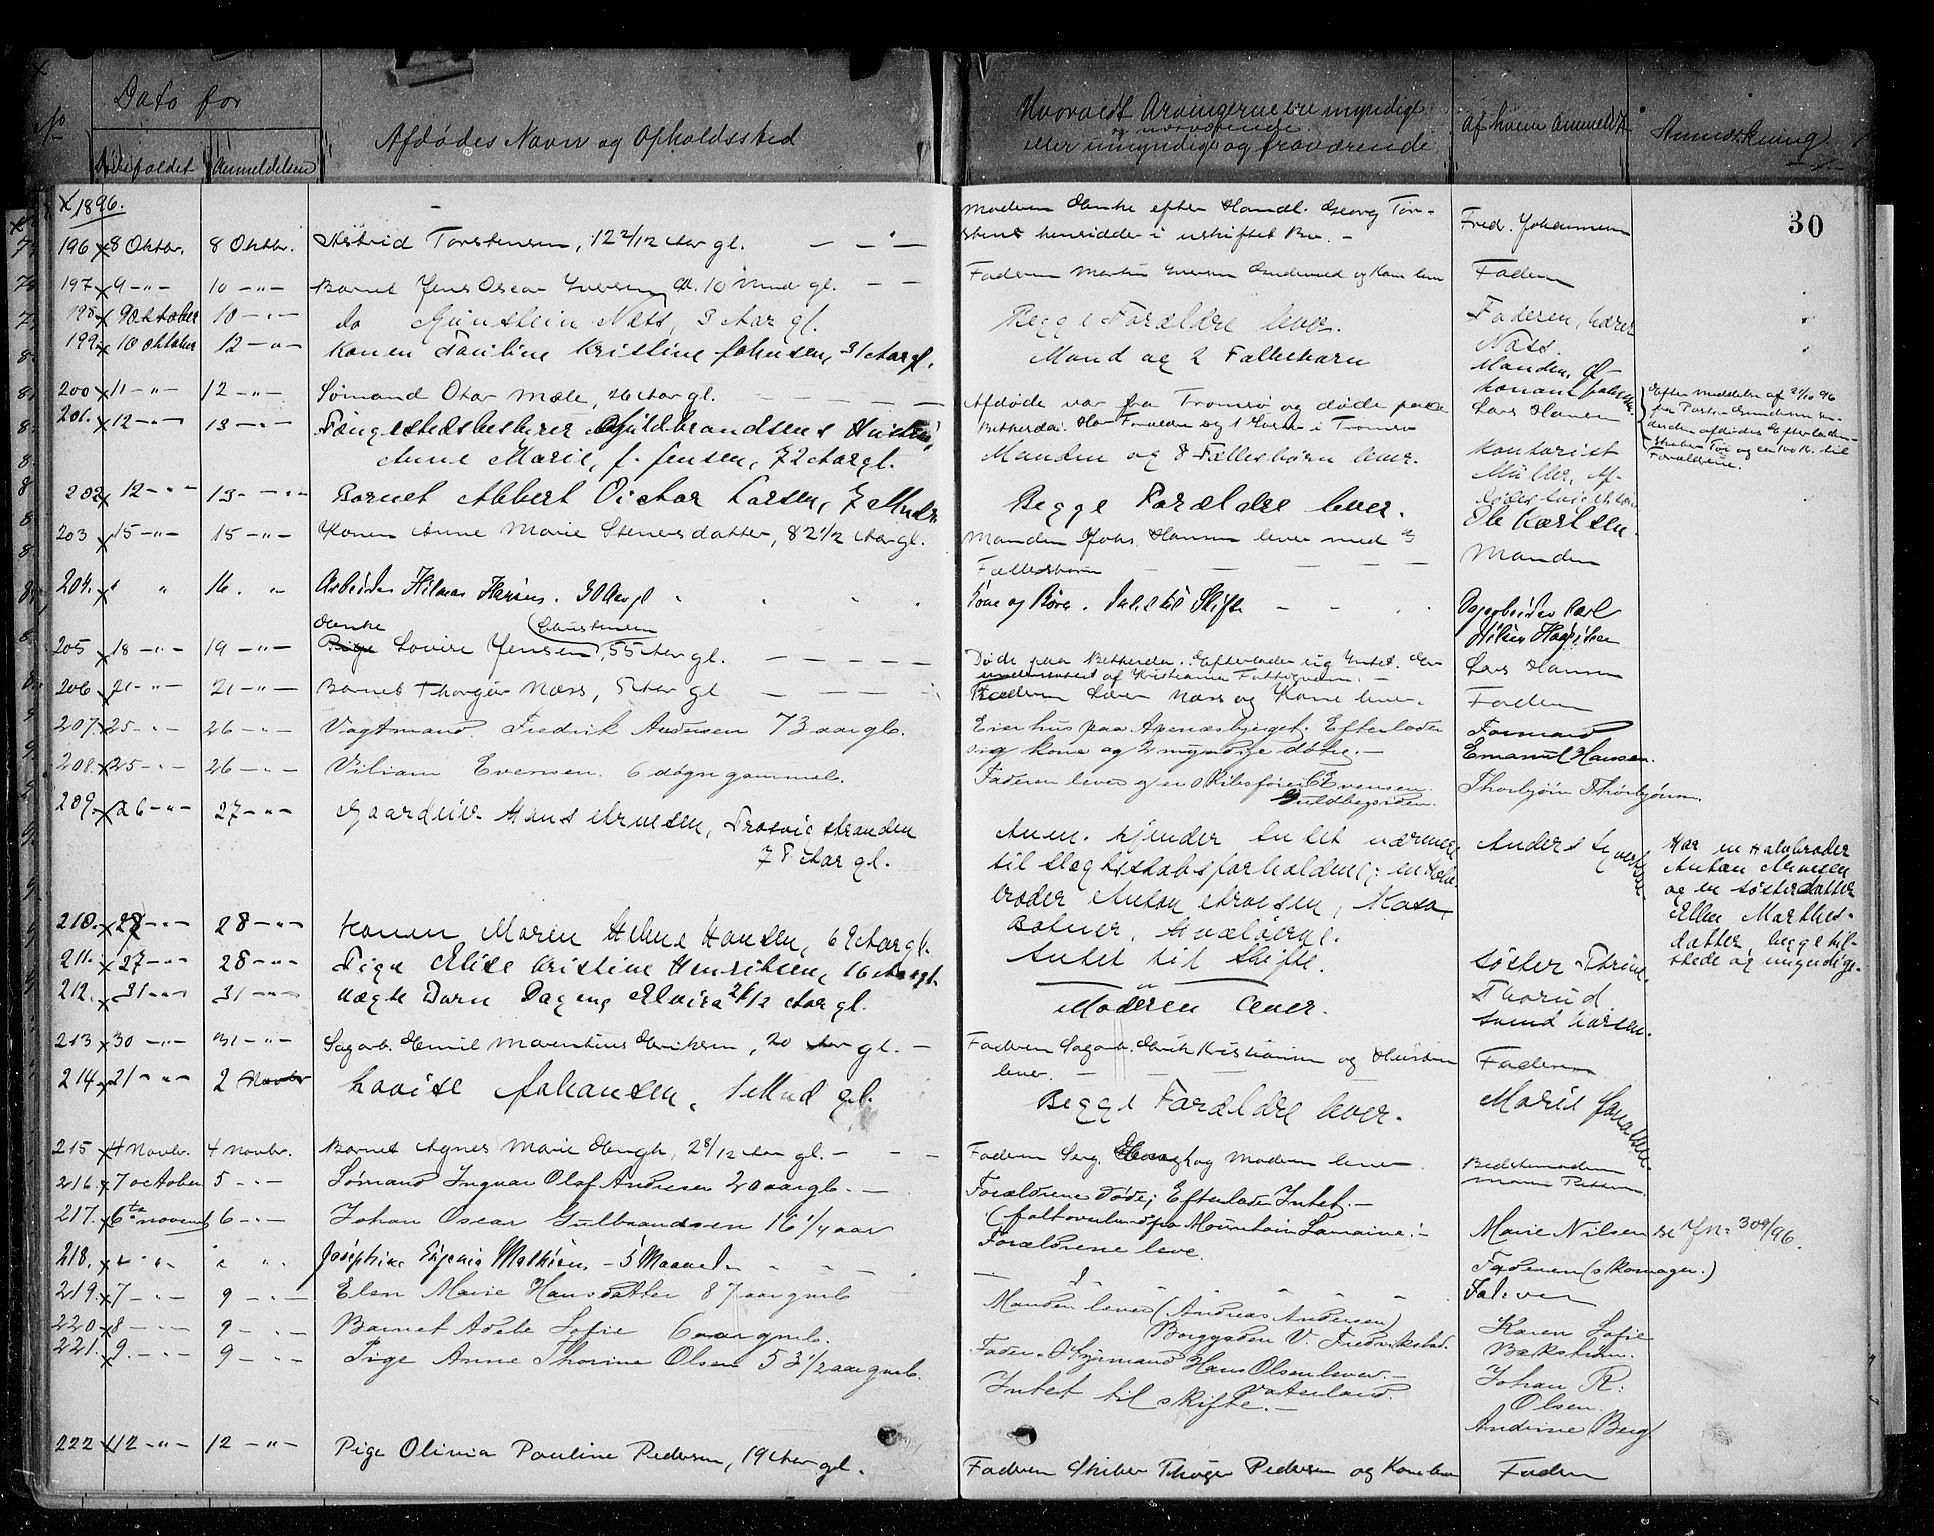 No
Dato for
Dødsfaldet
Anmeldelsen
Afdødes Navn og Opholdssted
Hvorvidt Arvingerne ere myndige
og nærværende
eller umyndige og fraværende
Af hvem anmeldt
Anmærkning
30
1896.
196 8 Oktbr. 8 Oktbr. Astrid Torstensen, 12 2/12 Aar gl.
Moderen Enke efter Handl. Georg Tor-
stens hensidder i uskiftet Bo. -
Fred. Johannesen
197 9 - " - 10 - " - Barnet Jens Oscar Iversen, 10 Mnd gl.
Faderen Martin Iversen og Kone lever
Faderen
198 9 Oktober 10 - " - do Gunstein Næss, 3 Aar gl.
Begge Forældre lever.
Faderen, Lærer
Næss.
199 10 Oktober 12 - " - Konen Pauline Kristine Johnsen, 31 Aar gl.
Mand og 2 Fællesbarn
Manden,
200 11 - " - 12 - " - Sømand Otar Mæle, 26 Aar gl.
Afdøde var fra Tromsø og døde paa
Bethesda. Har Forældre og i Tromsø
Lars Hansen
Efter meddelse af 21/10 96
fra Pastor Gundersen
afdødes Efterladen-
skaber Tøi og en til
Forældrene.
201. 12 - " - 13 - " - Fængselsbestyrer Guldbrandsens Hustru,
Anne Marie, f. Jensen, 72 Aar gl.
Manden og 8 Fællesbørn lever.
Kontorist
Müller, Af-
dødes
202 12 - " - 13 - " - Barnet Albert Victor Larsen, 7 Mndr
Begge Forældre lever.
Ole Karlsen.
203 15 - " - 15 - " - Konen Anne Marie Stenersdatter, 82 1/2 Aar gl.
Manden Johs. Hansen lever med 3
Fællesbørn
Manden
204. " " 16. " Arbeider Hilmar Hansen. 30 Aar gl
Kone og Børn. Intet til Skifte
Dagarbeider Carl
205 18 - " - 19 - " - Enke Pige Lovise Jensen, Christensen 55 Aar gl.
Døde paa Bethesda. Efterlader sig Intet. Er
understøttet af Kristiania Fattigvæsen. -
Lars Hansen
206 21 - " - 21 - " - Barnet Thorgeir Næss, 5 Aar gl
Faderen Lærer Næss og Kone lever
Faderen
207. 25 - " - 26 - " - Vagtmand Fredrik Andersen 73 aar gl.
Eier hus paa Apenæsbjerget. Efterlader
sig kone og 2 myndige døtre. -
Formand
Emanuel Hansen.
208. 25 - " - 26 - " - Viliam Evensen. 6 døgn gammel.
Faderen lever og er Skibsfører C. Evensen.
Guldbergsiden.
Thorbjørn Thorbjørnsen
209. 26 - " - 27 - " - Gaardeier Hans Arnesen, Trosvigstranden
78 Aar gl.
Anm. kjender Intet nærmere
til Slægtskabsforholdene; en Halv-
broder Anton Arnesen,
Hvaløerne.
Anders
Har en Halvbroder
Anton Arnesen
og en Søsterdatter
Ellen Marthes-
datter, begge til-
stede og myndige.
210. 28 - " - 28 - " - Konen Maren Helene Hansen, 69 Aar gl.
Intet til Skifte.
Søster Thrine
Thorud
211. 27 - " - 28 - " - Pige Elise Kristine Henriksen, 16 Aar gl.
- " -
212. 31 - " - 31 - " - Uægte Barn Dagny Elvira 2 8/12 Aar gl.
Moderen lever.
Svend Larsen.
213 30 - " - 31 - " - Sagarb. Emil Mauritius Henriksen, 20 Aar gl. -
Faderen Sagarb. Henrik Kristiansen og Hustru
lever.
Faderen
214 21 - " - 2 Novbr Lovise Johansen, 1 Mnd gl.
Begge Forældre lever.
Marie Johansen.
215 4 Novbr. 4 Novbr. Barnet Agnes Marie Haugh, 2 8/12 Aar gl. -
Faderen Serg. Haugh og Moderen lever
Bedstemoderen
Maren Pettersen
216. 7 October 5 - " - Sømand Ingvar Olaf Andresen 20 aar gl. -
Forældrene døde; Efterlader Intet. -
(faldt overbord paa Mountain Lamaine! -
Marie Nilsen
Se J No 309/96.
217. 6te novemb 6 - " - Johan Oscar Gulbrandsen 16 1/4 aar
Forældrene leve
Faderen (skomager.)
218. " " " " " Josephine Eugenia Mathisen - 5 Maaneder
Faderen
219. 7 - " - 9 - " - Elen Marie Hansdatter 87 aar gmb
Manden lever (Andreas Andersen)
Borggaden V. Fredrikstad.
Karen Sofie
Bækstrøm.
220 8 - " - 9 - " - Barnet Adele Sofie 6 aar gmb.
Fader Styrmand Hans Olsen lever. -
Vaterland.
Johan R.
Olsen.
221. 9. - " - 9 - " - Pige Anne Thorine Olsen 53 1/2 aar gmb.
Intet til skifte. -
Andrine Berg
222 12 - " - 12 - " - Pige Olivia Pauline Pedersen, 19 Aar gl.
Faderen Skiber Thøger Pedersen og Kone lever
Faderen